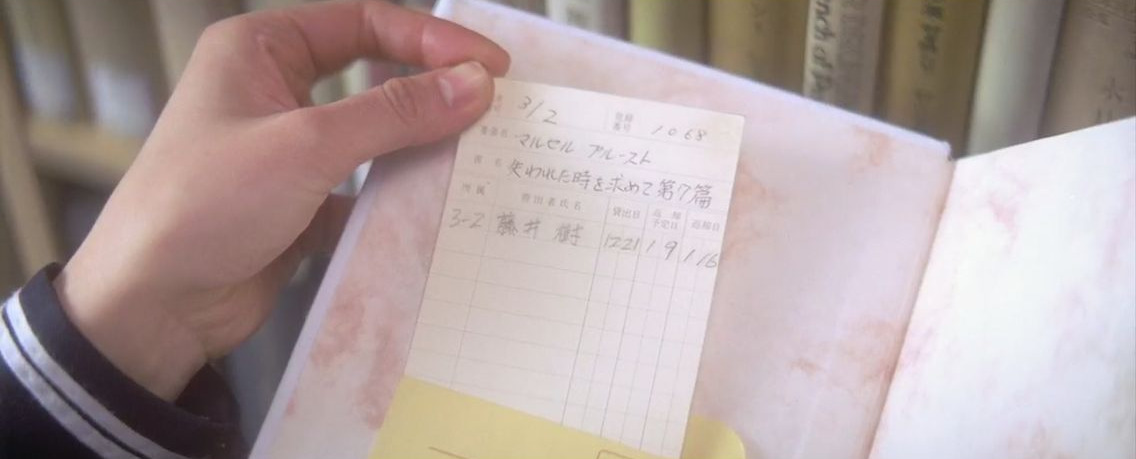 3/2 登録番号 1068
著者名 マルセル プルースト
書名 失われた時を求めて第7篇
所属 貸出者氏名 貸出日 返却予定日 返却日
3-2 藤井 樹 12 21 1 9 1 16